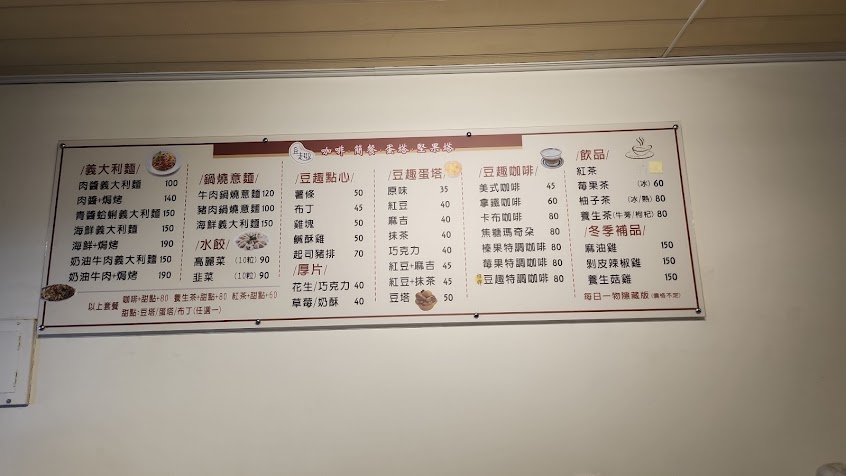 豆趣 咖啡·簡餐·蛋塔·堅果塔
/義大利麵/
肉醬義大利麵 100
肉醬+焗烤 140
青醬蛤蜊義大利麵 150
海鮮義大利麵 150
海鮮+焗烤 190
奶油牛肉義大利麵 150
奶油牛肉+焗烤 190
/鍋燒意麵/
牛肉鍋燒意麵 120
豬肉鍋燒意麵 100
海鮮義大利麵 150
/水餃/
高麗菜 (10粒) 90
韭菜 (10粒) 90
以上套餐 咖啡+甜點+80 養生茶+甜點+80 紅茶+甜點+60
甜點:豆塔/蛋塔/布丁(任選一)
/豆趣點心/
薯條 50
布丁 45
雞塊 50
鹹酥雞 50
起司豬排 70
/厚片/
花生/巧克力 40
草莓/奶酥 40
/豆趣蛋塔/
原味 35
紅豆 40
麻吉 40
抹茶 40
巧克力 40
紅豆+麻吉 45
紅豆+抹茶 45
豆塔 50
/豆趣咖啡/
美式咖啡 45
拿鐵咖啡 60
卡布咖啡 80
焦糖瑪奇朵 80
榛果特調咖啡 80
莓果特調咖啡 80
豆趣特調咖啡 80
/飲品/
紅茶
莓果茶 (冰) 60
柚子茶 (冰/熱) 60
養生茶(牛蒡/枸杞) 80
/冬季補品/
麻油雞 150
剝皮辣椒雞 150
養生菇雞 150
每日一物隱藏版 (價格不定)